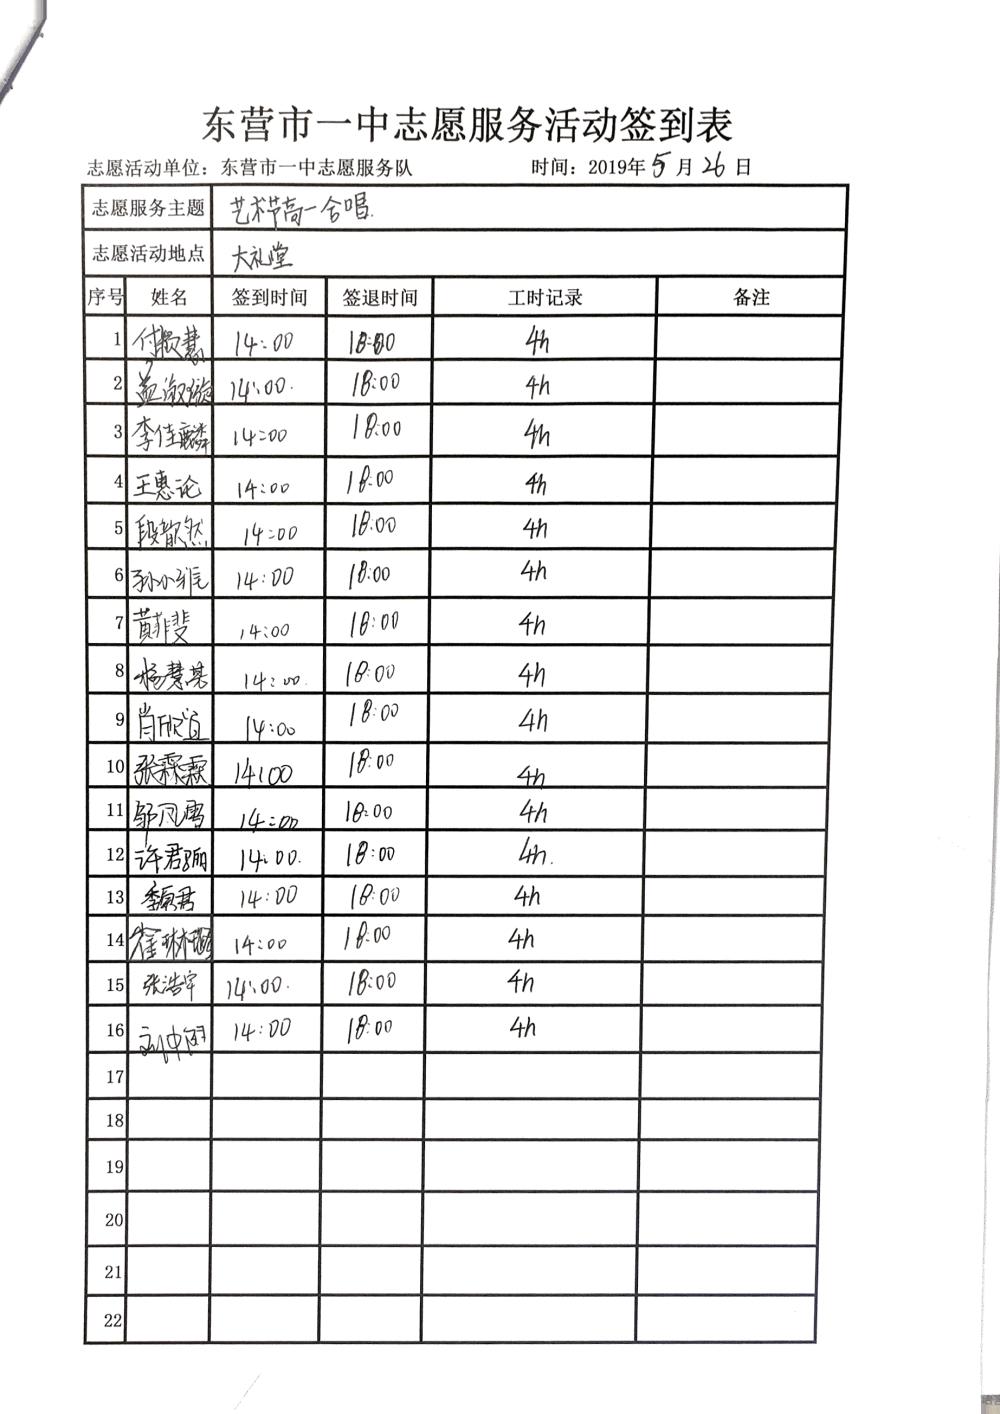 东营市一中志愿服务活动签到表
志愿活动单位：东营市一中志愿服务队 时间：2019年5月26日
志愿服务主题 艺术节高一合唱.
志愿活动地点 大礼堂
序号 姓名 签到时间 签退时间 工时记录 备注
1 付 慧 14:00 18:00 4h
2 孟淑璇 14:00. 18:00 4h
3 李佳麟 14:00 18:00 4h
4 王惠论 14:00 18:00 4h
5 段歆然 14:00 18:00 4h
6 孙小维 14:00 18:00 4h
7 黄菲斐 14:00 18:00 4h
8 杨慧某 14:00. 18:00 4h
9 肖欣宜 14:00 18:00 4h
10 张霖霖 14:00 18:00 4h
11 邹凡雪 14:00 18:00 4h
12 许君 14:00. 18:00 4h.
13 君 14:00 18:00 4h
14 崔琳 14:00 18:00 4h
15 张浩宇 14:00. 18:00 4h
16 刘仲 14:00 18:00 4h
17
18
19
20
21
22